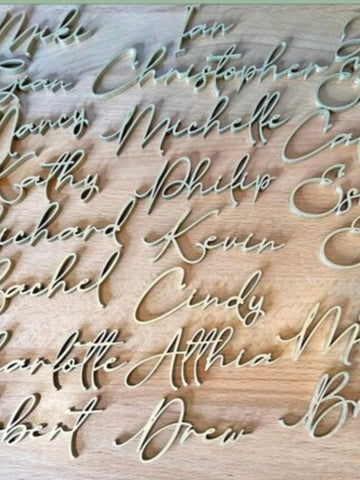 Mike Ian
Sean Christopher
Nancy Michelle
Kathy Philip
ichard Kevin
achel Cindy
arlotte Althia
bert Drew